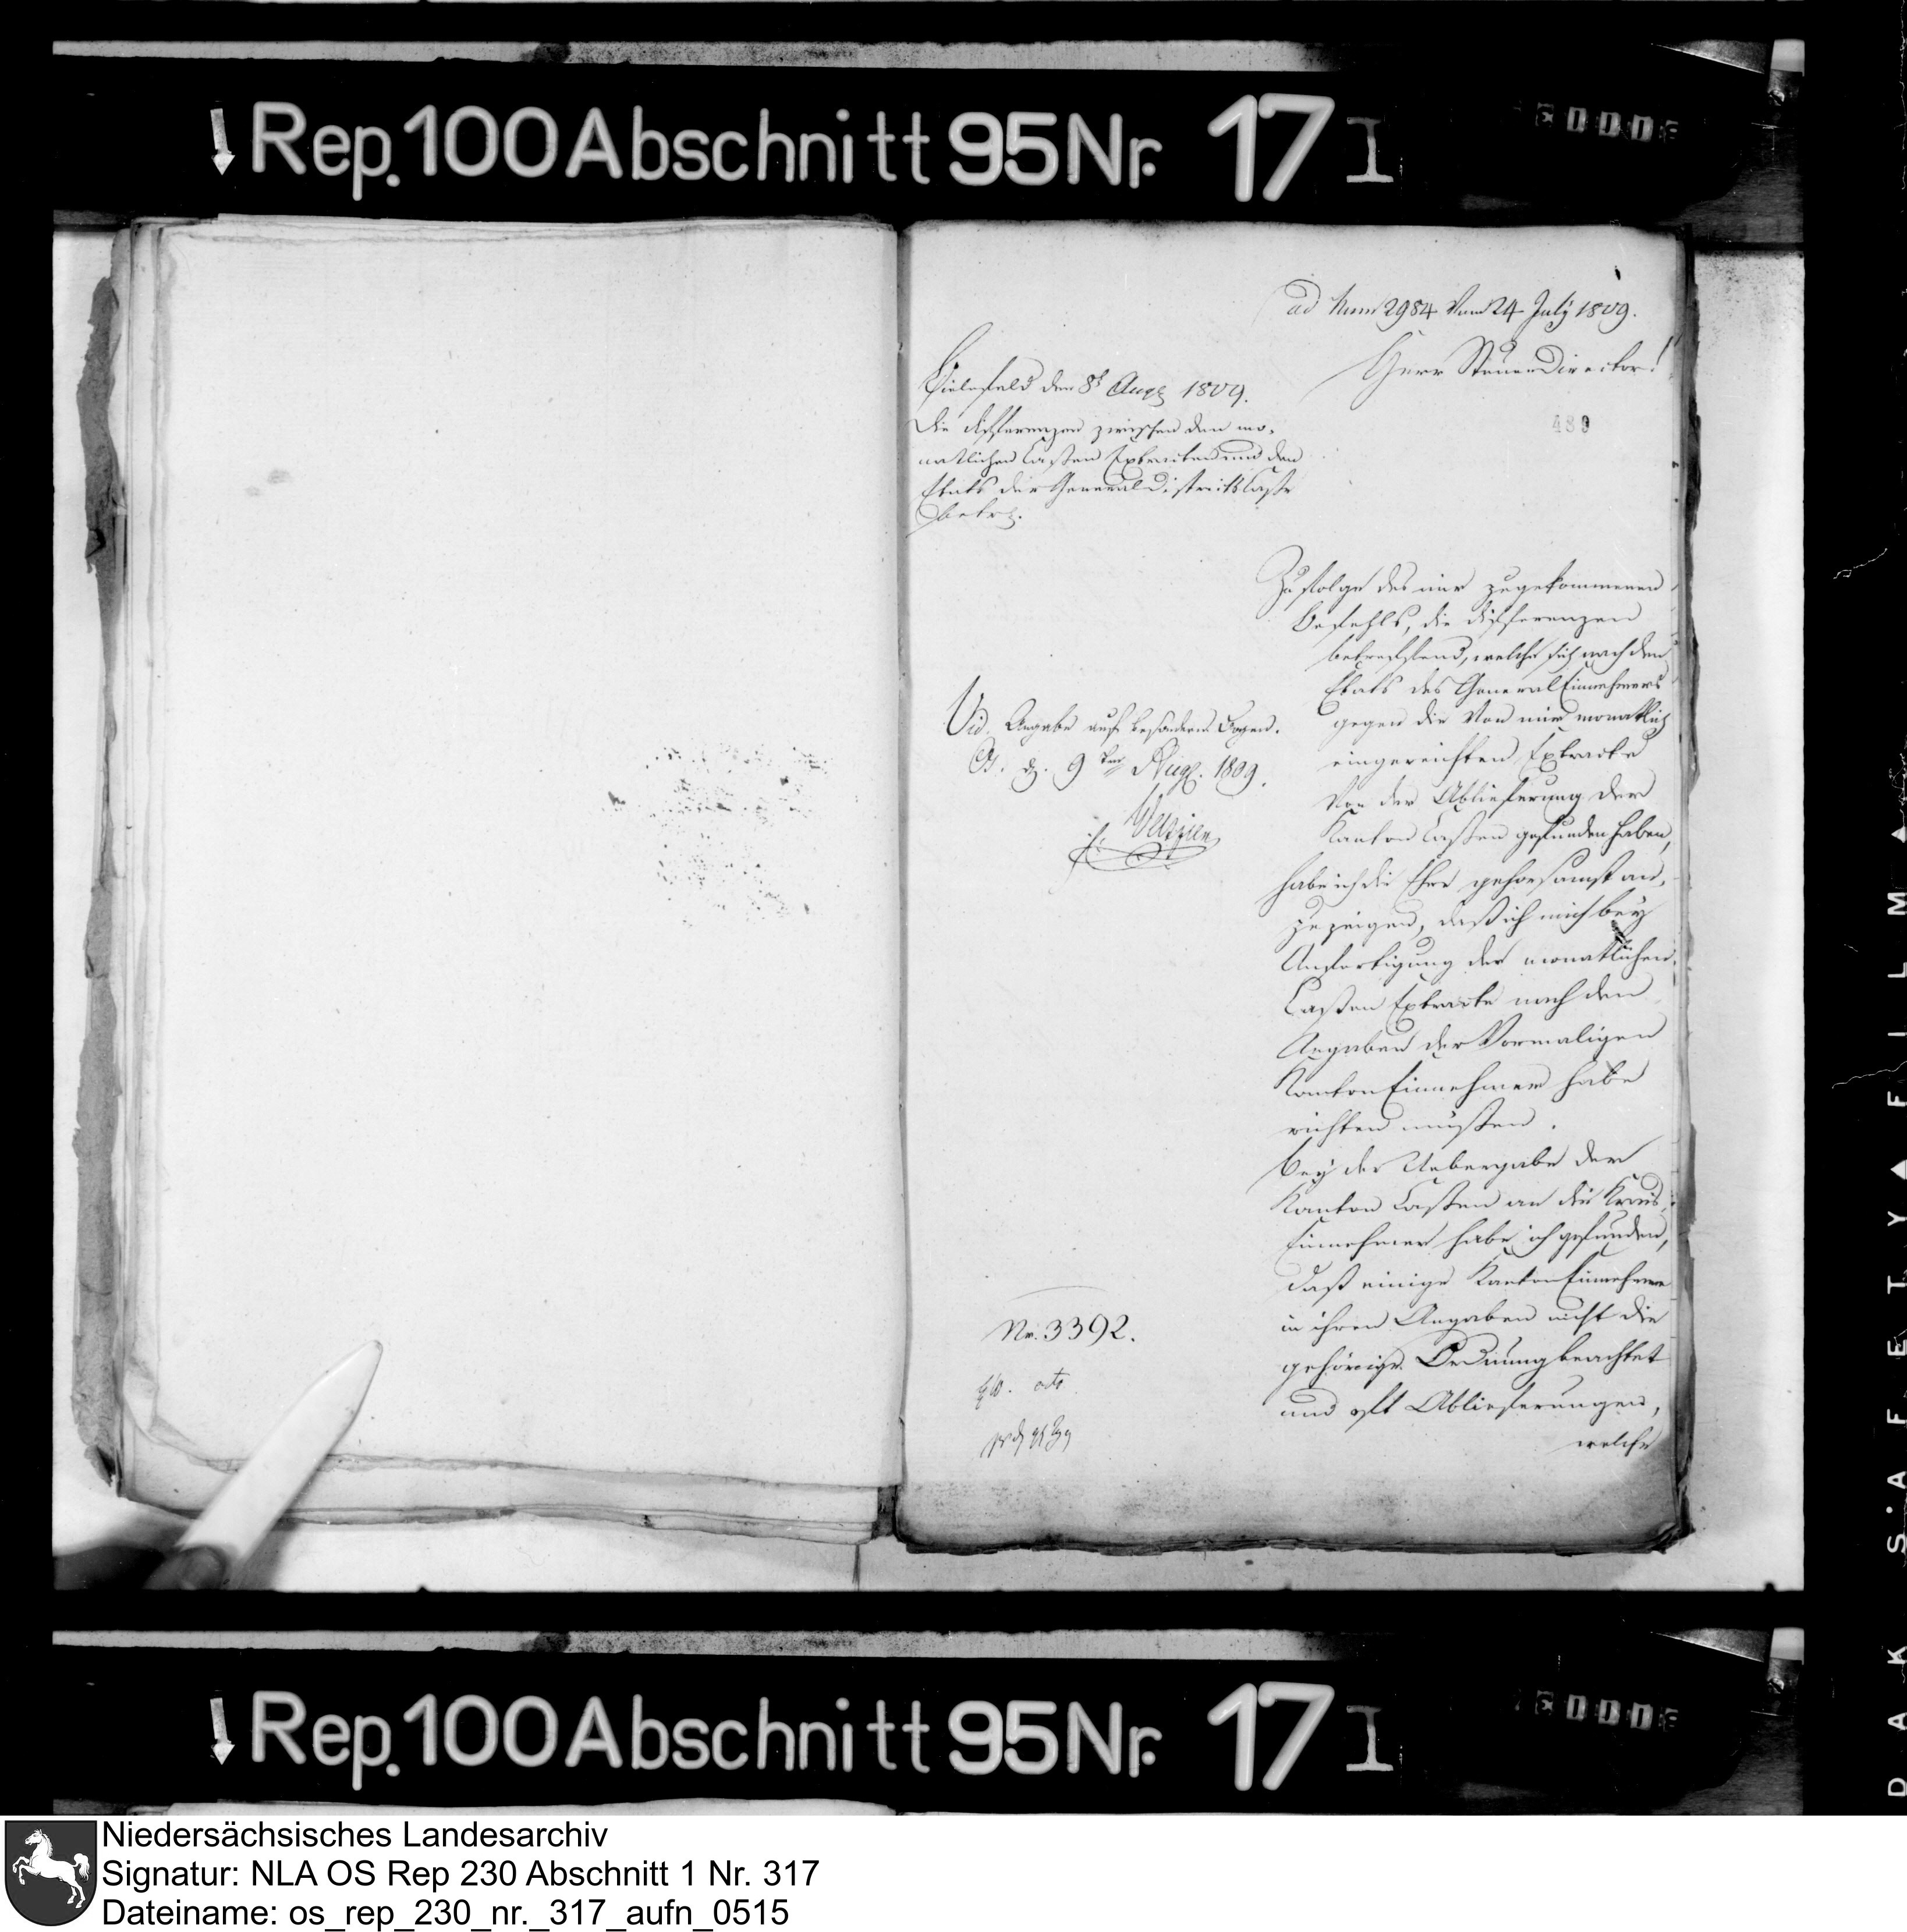 Rep. 100 Abschnitt 95 Nr. 17 I
ad Num 2984 Vom 24 July 1809.
Herr SteuerDirector!
430
Bielefeld den 8t Aug 1809.
Die differenzen zwischen den mo-
natlichen Cassen Extracten und den
Etats der General Districts Casse
betr.
Zufolge des mir zugekommenen
Befehls, die differenzen
betreffend, welche sich nach dem
Etats des General Einnehmers
gegen die von mir monatlich
eingereichten Extracte
von der Ablieferung der
Kanton Cassen gefunden haben,
habe ich die Ehre gehorsamst an-
zuzeigen, daß ich mich bey
Anfertigung der monatlichen
Cassen Extracte nach den
Angaben der Vormaligen
Kanton Einnehmer habe
richten müssen.
Bey der Uebergabe der
Kanton Cassen an die Kreis-
Einnehmer habe ich gefunden,
daß einige Kanton Einnehmer
in ihren Angaben nicht die
gehörige Ordnung beachtet
und oft Ablieferungen,
welche
Vid. Angabe auf besonderm Bogen.
9ten Aug. 1809.
Nr. 3392.
Rep. 100 Abschnitt 95 Nr. 17 I
SAFETY FILM
Niedersächsisches Landesarchiv
Signatur: NLA OS Rep 230 Abschnitt 1 Nr. 317
Dateiname: os_rep_230_nr._317_aufn_0515